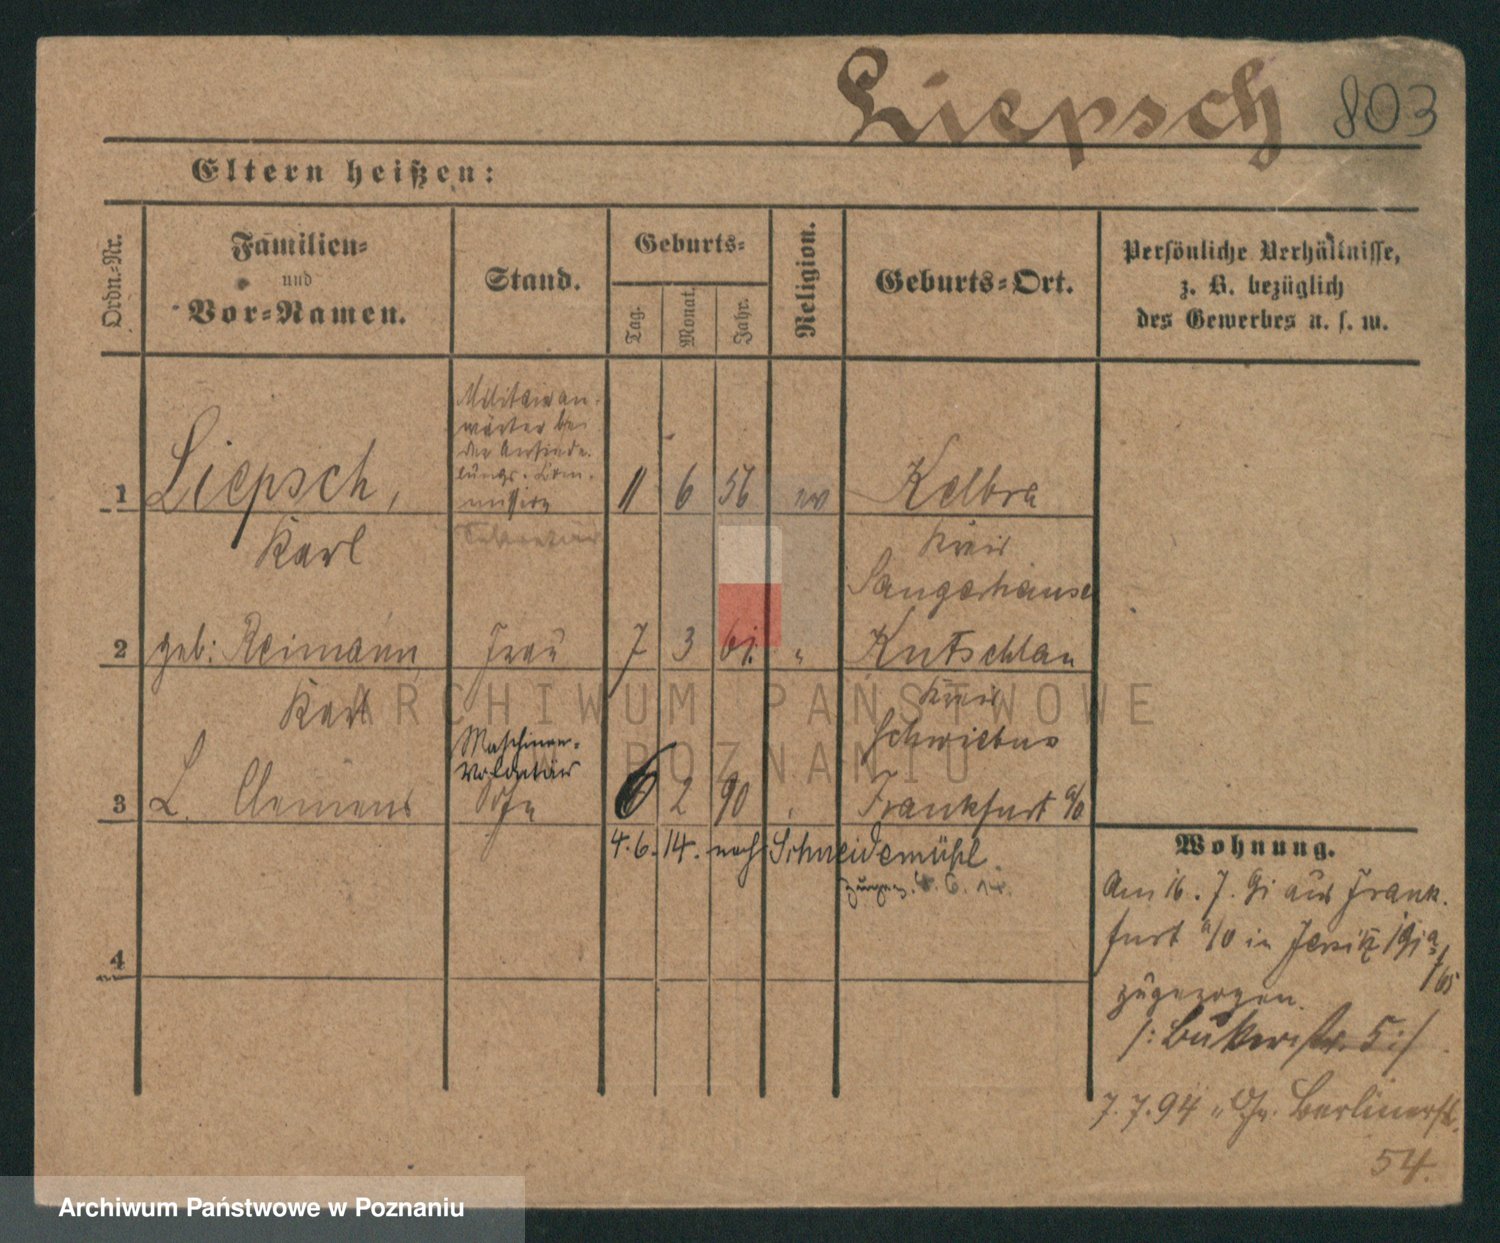 Liepsch 803
Eltern heißen:
Ordn.-Nr.
Familien-
und
Vor-Namen.
Stand.
Geburts-
Tag.
Monat.
Jahr.
Religion.
Geburts-Ort.
Persönliche Verhältnisse,
z. B. bezüglich
des Gewerbes u. s. w.
Militairan-
wärter bei
der Ansiede-
lungs-Com-
mission
1 Liepsch, 11 6 56 ev Kelbra
Karl
Kreis
Sangerhausen
2 geb: Reimann Frau 7 3 61. " Kutschlau
Kreis
Schwiebus
Maschinen-
Volontär
3 L. Clemens Sohn 6 2 90 " Frankfurt a/O
4.6.14. nach Schneidemühl.
4.6.14.
4
Wohnung.
Am 16. 7. 91 aus Frank-
furt a/O in Jersitz
zugezogen.
/: Bukerstr. 5 :/
7.7.94 " Gr. Berlinerstr.
54.
ARCHIWUM PAŃSTWOWE
W POZNANIU
Archiwum Państwowe w Poznaniu